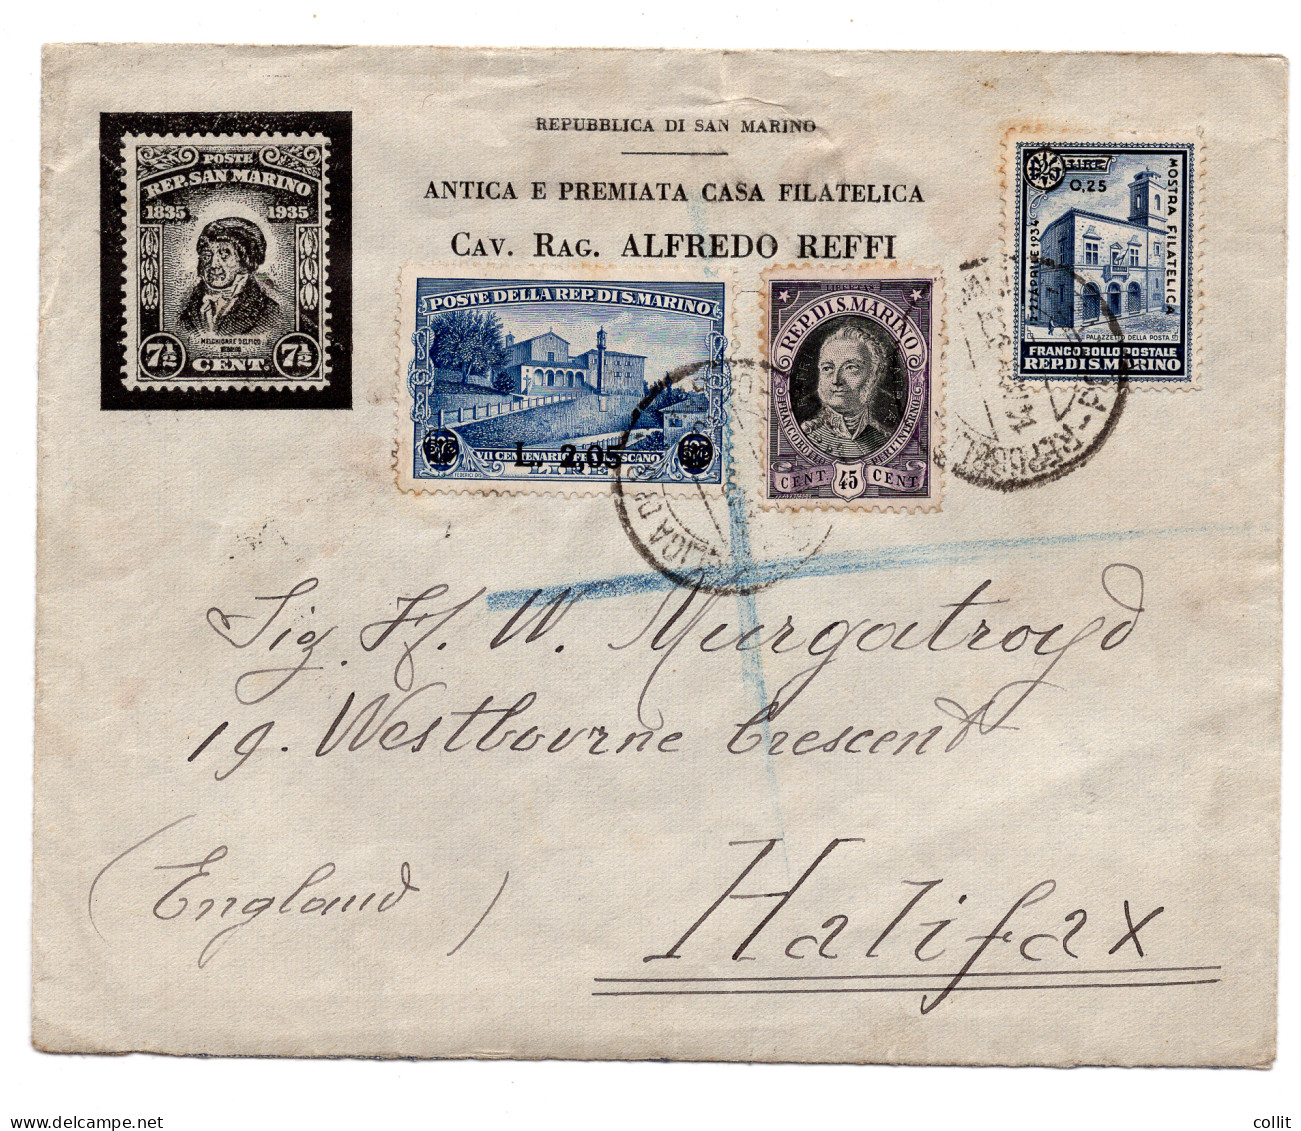 REPUBBLICA DI SAN MARINO
ANTICA E PREMIATA CASA FILATELICA
CAV. RAG. ALFREDO REFFI
POSTE
REP. SAN MARINO
1835 1935
MELCHIORRE DELFICO
7½ 7½
CENT.
POSTE DELLA REP. DI S. MARINO
VII CENTENARIO FRANCESCANO
L. 2,05
LIRE
REP. DI S. MARINO
FRANCOBOLLO PER INTERNO
CENT. 45 CENT
LIRE
0,25
MOSTRA FILATELICA
12-27 APRILE 1934
PALAZZETTO DELLA POSTA
FRANCOBOLLO POSTALE
REP. DI S. MARINO
Sig. H. W. Murgatroyd
19. Westbourne Crescent
Halifax
(England)
collit